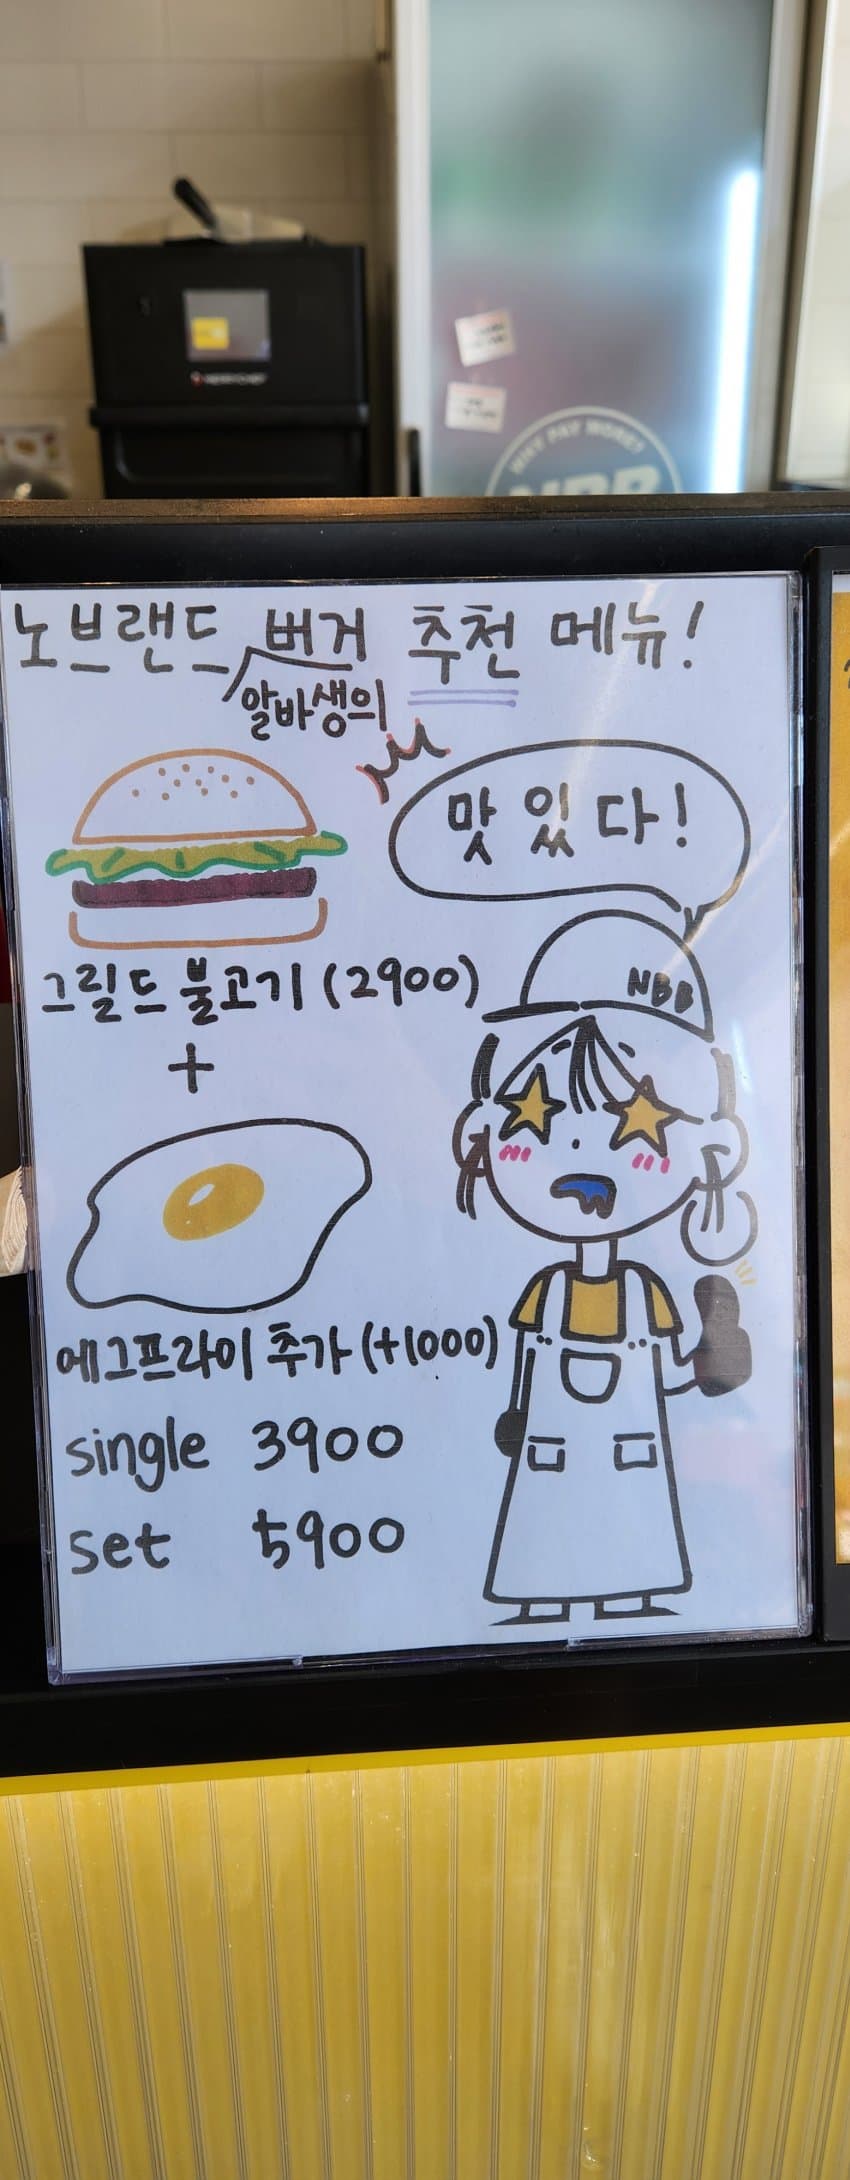 WHY PAY MORE?
NBB
노브랜드 버거 추천 메뉴!
알바생의
맛있다!
NBB
그릴드 불고기 (2900)
+
에그프라이 추가 (+1000)
single 3900
set 5900